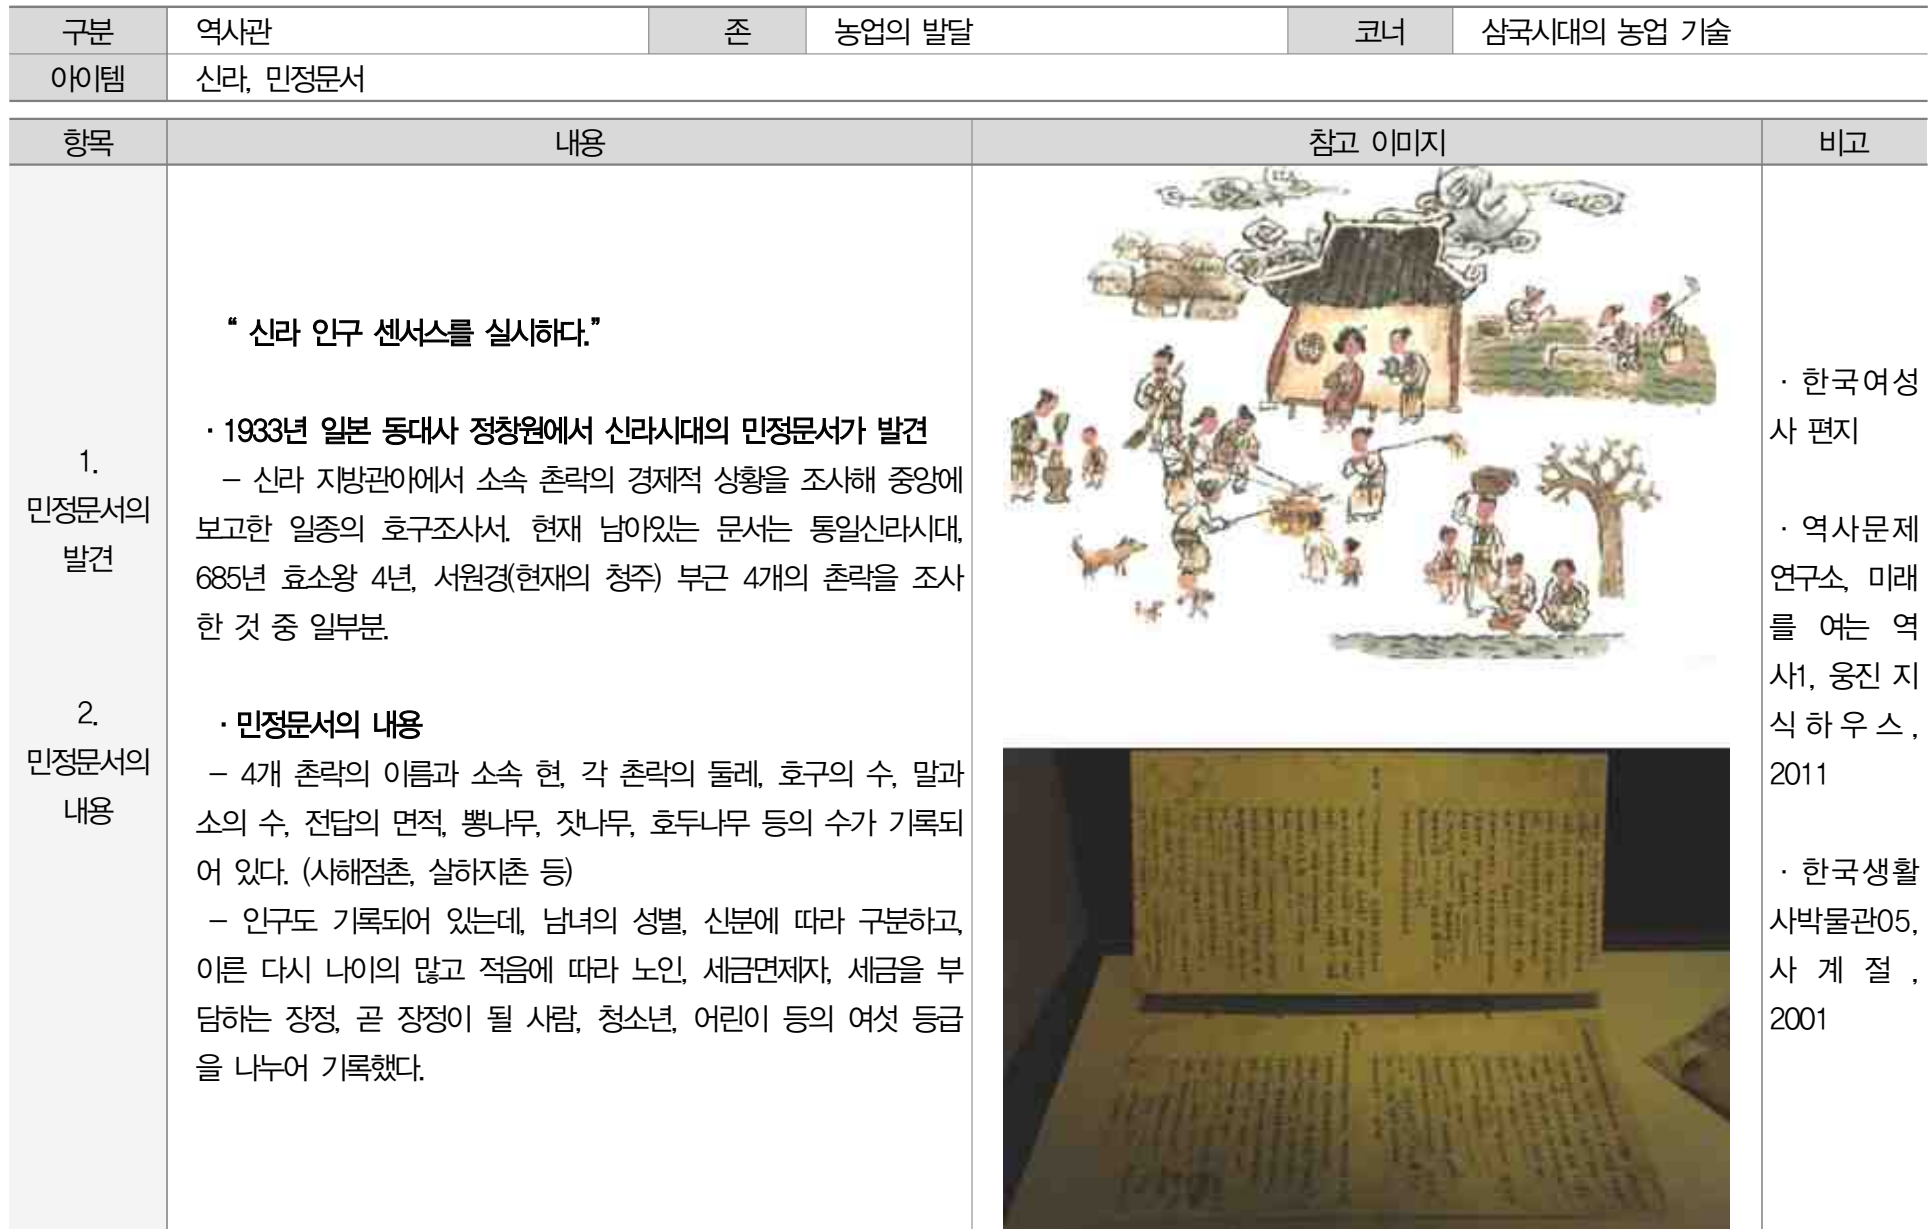 구분 역사관 존 농업의 발달 코너 삼국시대의 농업 기술
아이템 신라, 민정문서
항목 내용 참고 이미지 비고
1.
민정문서의
발견
2.
민정문서의
내용
“ 신라 인구 센서스를 실시하다.”
· 1933년 일본 동대사 정창원에서 신라시대의 민정문서가 발견
– 신라 지방관아에서 소속 촌락의 경제적 상황을 조사해 중앙에
보고한 일종의 호구조사서. 현재 남아있는 문서는 통일신라시대,
685년 효소왕 4년, 서원경(현재의 청주) 부근 4개의 촌락을 조사
한 것 중 일부분.
· 민정문서의 내용
– 4개 촌락의 이름과 소속 현, 각 촌락의 둘레, 호구의 수, 말과
소의 수, 전답의 면적, 뽕나무, 잣나무, 호두나무 등의 수가 기록되
어 있다. (사해점촌, 살하지촌 등)
– 인구도 기록되어 있는데, 남녀의 성별, 신분에 따라 구분하고,
이른 다시 나이의 많고 적음에 따라 노인, 세금면제자, 세금을 부
담하는 장정, 곧 장정이 될 사람, 청소년, 어린이 등의 여섯 등급
을 나누어 기록했다.
· 한국여성
사 편지
· 역사문제
연구소, 미래
를 여는 역
사1, 웅진 지
식하우스,
2011
· 한국생활
사박물관05,
사계절,
2001